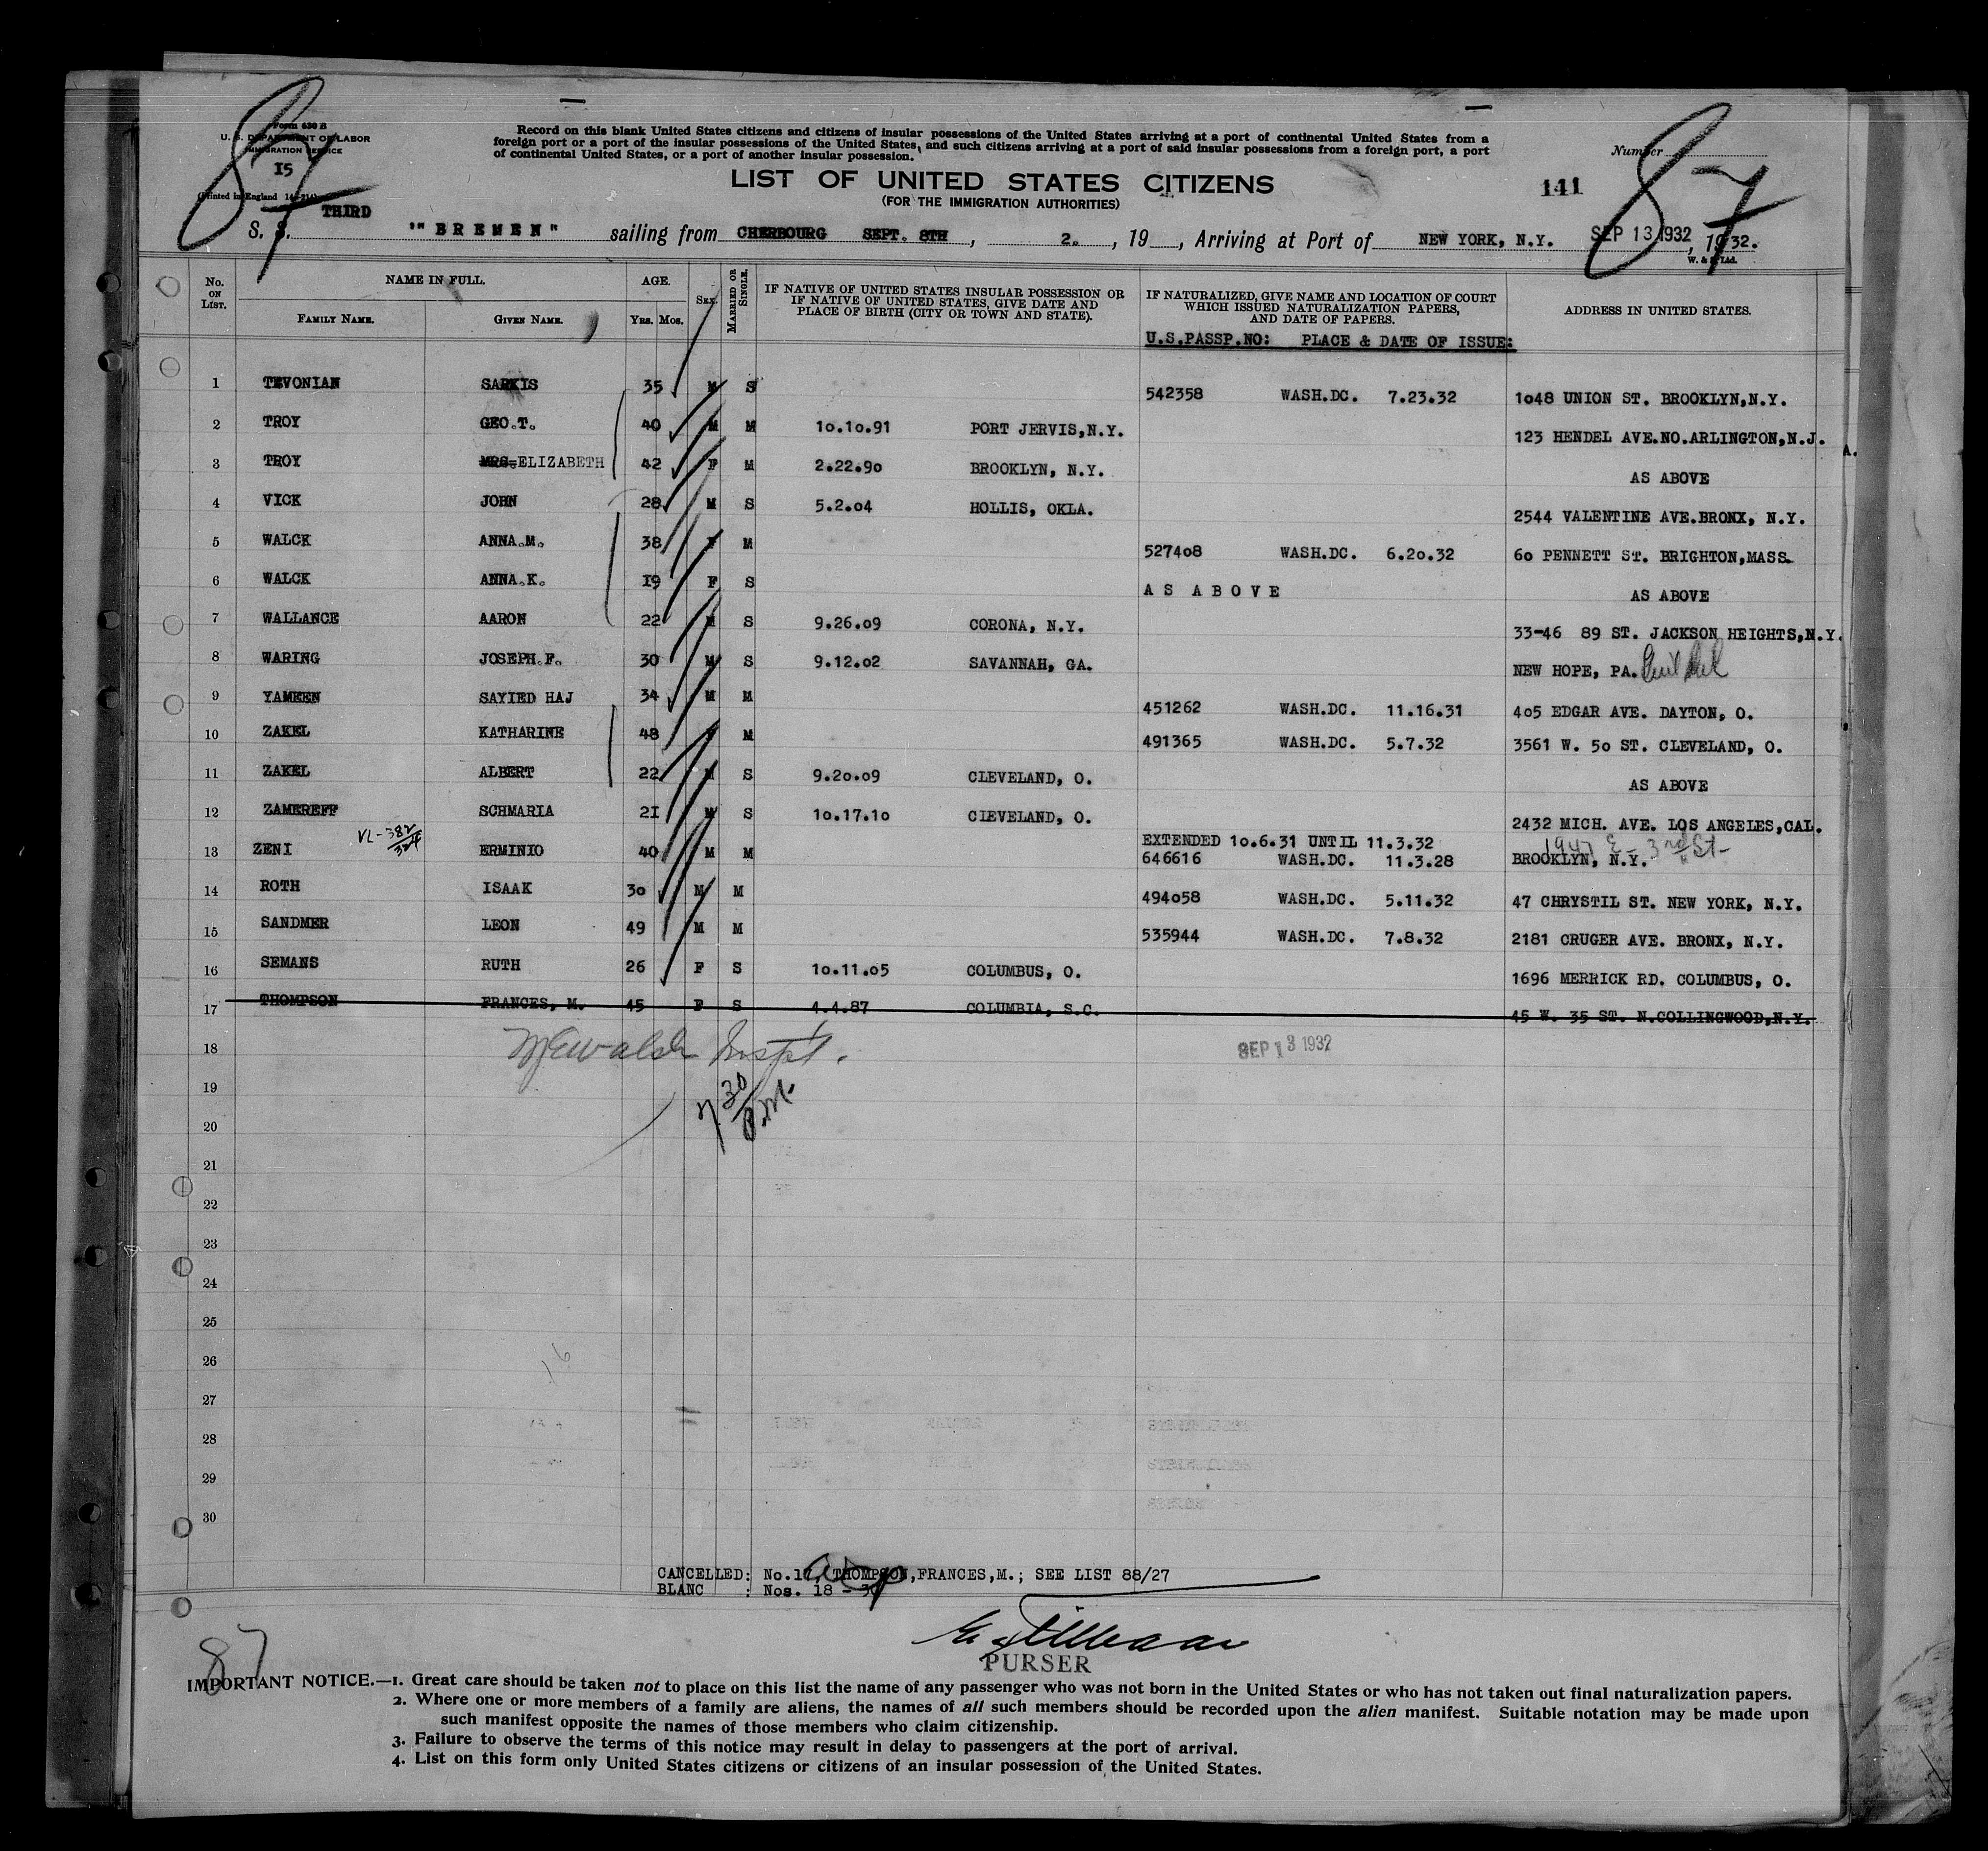 87
Form 630 B
U. S. DEPARTMENT OF LABOR
IMMIGRATION SERVICE
15
(Printed in England
Record on this blank United States citizens and citizens of insular possessions of the United States arriving at a port of continental United States from a
foreign port or a port of the insular possessions of the United States, and such citizens arriving at a port of said insular possessions from a foreign port, a port
of continental United States, or a port of another insular possession.
Number
87
LIST OF UNITED STATES CITIZENS
141
(FOR THE IMMIGRATION AUTHORITIES)
THIRD
S. S. "BREMEN" sailing from CHERBOURG SEPT. 8TH, 2. , 19 , Arriving at Port of NEW YORK, N.Y. SEP 13 1932, 1932.
W. & S. Ltd.
No. ON LIST. NAME IN FULL. FAMILY NAME. GIVEN NAME. AGE. Yrs. Mos. SEX. MARRIED OR SINGLE. IF NATIVE OF UNITED STATES INSULAR POSSESSION OR IF NATIVE OF UNITED STATES, GIVE DATE AND PLACE OF BIRTH (CITY OR TOWN AND STATE). IF NATURALIZED, GIVE NAME AND LOCATION OF COURT WHICH ISSUED NATURALIZATION PAPERS, AND DATE OF PAPERS. ADDRESS IN UNITED STATES.
U.S.PASSP.NO: PLACE & DATE OF ISSUE:
1 TEVONIAN SARKIS 35 M S 542358 WASH.DC. 7.23.32 1048 UNION ST. BROOKLYN,N.Y.
2 TROY GEO.T. 40 M M 10.10.91 PORT JERVIS,N.Y. 123 HENDEL AVE.NO.ARLINGTON,N.J.
3 TROY MRS. ELIZABETH 42 F M 2.22.90 BROOKLYN, N.Y. AS ABOVE
4 VICK JOHN 28 M S 5.2.04 HOLLIS, OKLA. 2544 VALENTINE AVE.BRONX, N.Y.
5 WALCK ANNA.M. 38 F M 527408 WASH.DC. 6.20.32 60 PENNETT ST. BRIGHTON,MASS.
6 WALCK ANNA.K. 19 F S AS ABOVE AS ABOVE
7 WALLANCE AARON 22 M S 9.26.09 CORONA, N.Y. 33-46 89 ST. JACKSON HEIGHTS,N.Y.
8 WARING JOSEPH.F. 30 M S 9.12.02 SAVANNAH, GA. NEW HOPE, PA.
9 YAMEEN SAYIED HAJ 34 M M 451262 WASH.DC. 11.16.31 405 EDGAR AVE. DAYTON, O.
10 ZAKEL KATHARINE 48 F M 491365 WASH.DC. 5.7.32 3561 W. 50 ST. CLEVELAND, O.
11 ZAKEL ALBERT 22 M S 9.20.09 CLEVELAND, O. AS ABOVE
12 ZAMEREFF SCHMARIA 21 M S 10.17.10 CLEVELAND, O. 2432 MICH. AVE. LOS ANGELES,CAL.
VL-382/324 EXTENDED 10.6.31 UNTIL 11.3.32 1947 E - 3rd St-
13 ZENI ERMINIO 40 M M 646616 WASH.DC. 11.3.28 BROOKLYN, N.Y.
14 ROTH ISAAK 30 M M 494058 WASH.DC. 5.11.32 47 CHRYSTIL ST. NEW YORK, N.Y.
15 SANDMER LEON 49 M M 535944 WASH.DC. 7.8.32 2181 CRUGER AVE. BRONX, N.Y.
16 SEMANS RUTH 26 F S 10.11.05 COLUMBUS, O. 1696 MERRICK RD. COLUMBUS, O.
17 THOMPSON FRANCES, M. 45 F S 4.4.87 COLUMBIA, S.C. 45 W. 35 ST. N.COLLINGWOOD,N.Y.
18 SEP 13 1932
19 7 30/P.M.
20
21
22
23
24
25
26
16
27
28
29
30
CANCELLED: No.17, THOMPSON,FRANCES,M.; SEE LIST 88/27
BLANC : Nos. 18 - 30
PURSER
87
IMPORTANT NOTICE.—1. Great care should be taken not to place on this list the name of any passenger who was not born in the United States or who has not taken out final naturalization papers.
2. Where one or more members of a family are aliens, the names of all such members should be recorded upon the alien manifest. Suitable notation may be made upon
such manifest opposite the names of those members who claim citizenship.
3. Failure to observe the terms of this notice may result in delay to passengers at the port of arrival.
4. List on this form only United States citizens or citizens of an insular possession of the United States.